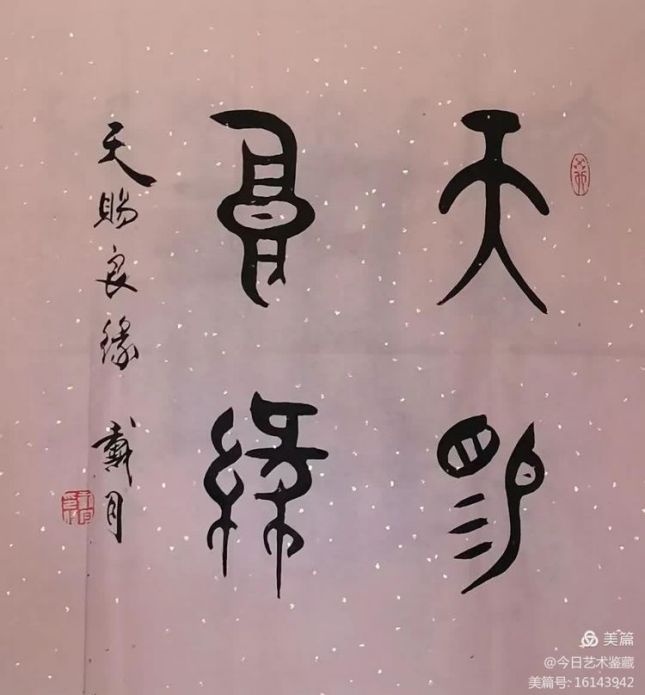 天賜
良緣
天賜良緣 戴月
美篇
@今日艺术鉴藏
美篇号: 16143942